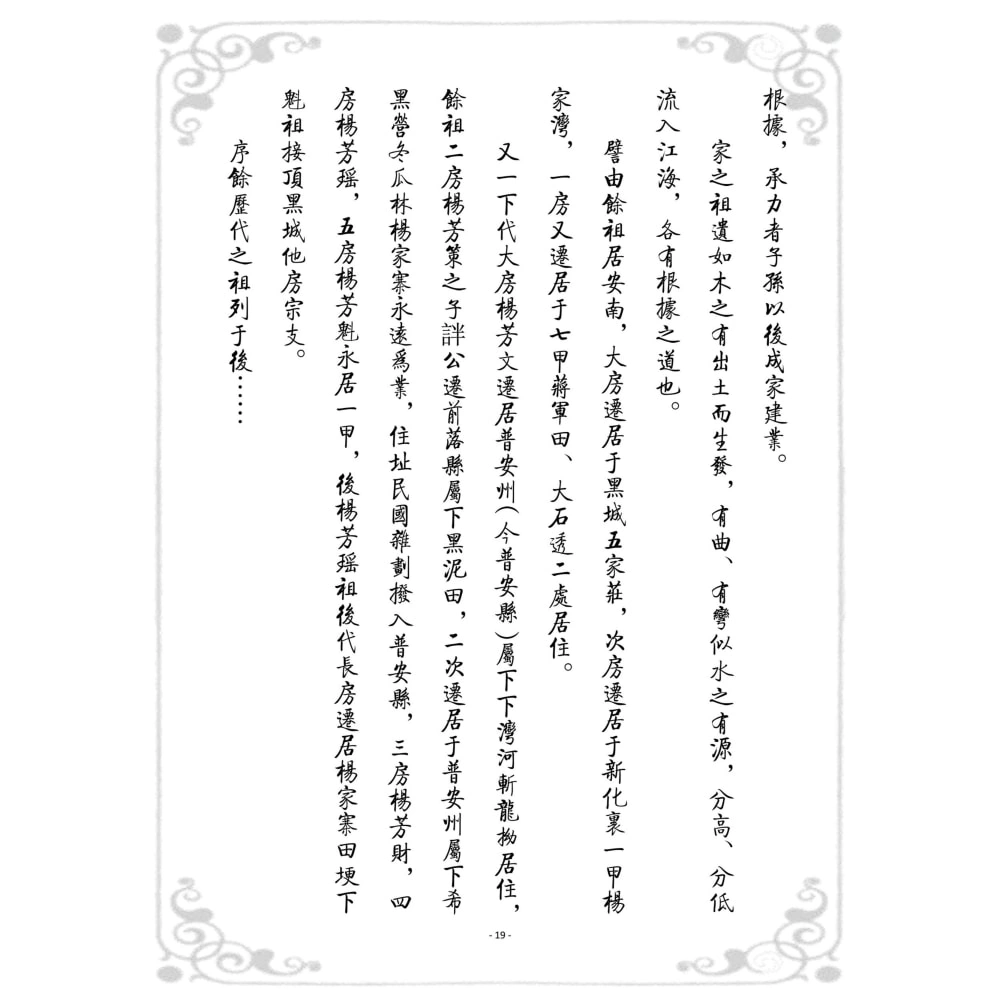 根據，承力者子孫以後成家建業。
家之祖遺如木之有出土而生發，有曲、有彎似水之有源，分高、分低
流入江海，各有根據之道也。
譬由餘祖居安南，大房遷居于黑城五家莊，次房遷居于新化裏一甲楊
家灣，一房又遷居于七甲蔣軍田、大石透二處居住。
又一下代大房楊芳文遷居普安州（今普安縣）屬下下灣河斬龍拗居住，
餘祖二房楊芳策之子詳公遷前落縣屬下黑泥田，二次遷居于普安州屬下希
黑營冬瓜林楊家寨永遠爲業，住址民國雜劃撥入普安縣，三房楊芳財，四
房楊芳瑶，五房楊芳魁永居一甲，後楊芳瑶祖後代長房遷居楊家寨田埂下
魁祖接頂黑城他房宗支。
序餘歷代之祖列于後……
- 19 -